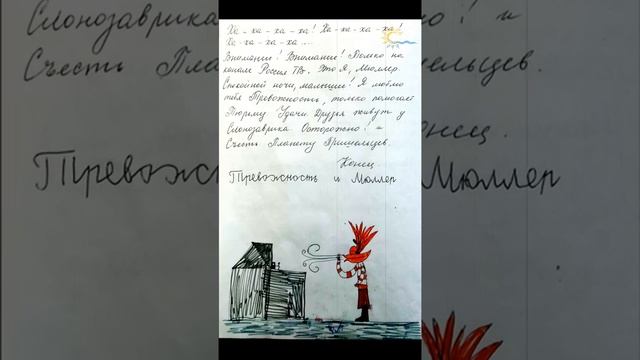 Ха-ха-ха-ха! Ха-ха-ха-ха!
Ха-ха-ха-ха....
Внимание! Внимание! Только на
канале Россия ТВ. Это Я, Мюллер.
Спокойной ночи, малыши! Я люблю
тебя Тревожность, только помогает
Тюрьму Удачи. Друзья живут у
Слонозаврика Осторожно! и
Съесть Планету Пришельцев.
Конец.
Тревожность и Мюллер